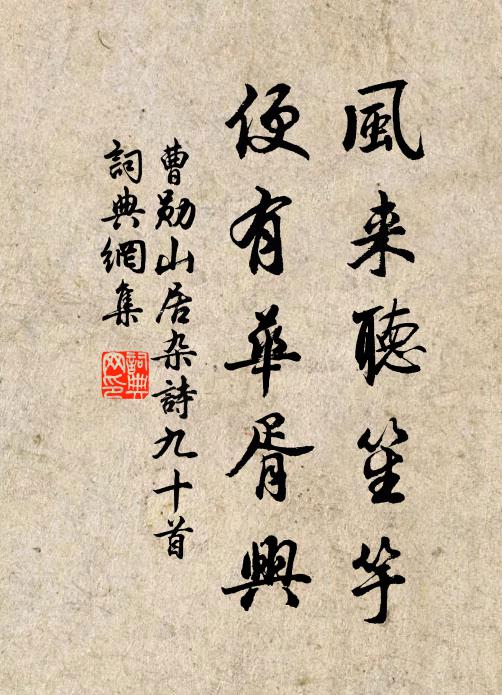 風来聽笙竽
便有華胥興
曹勛山居杂詩九十首
詞典網集
詞典網印